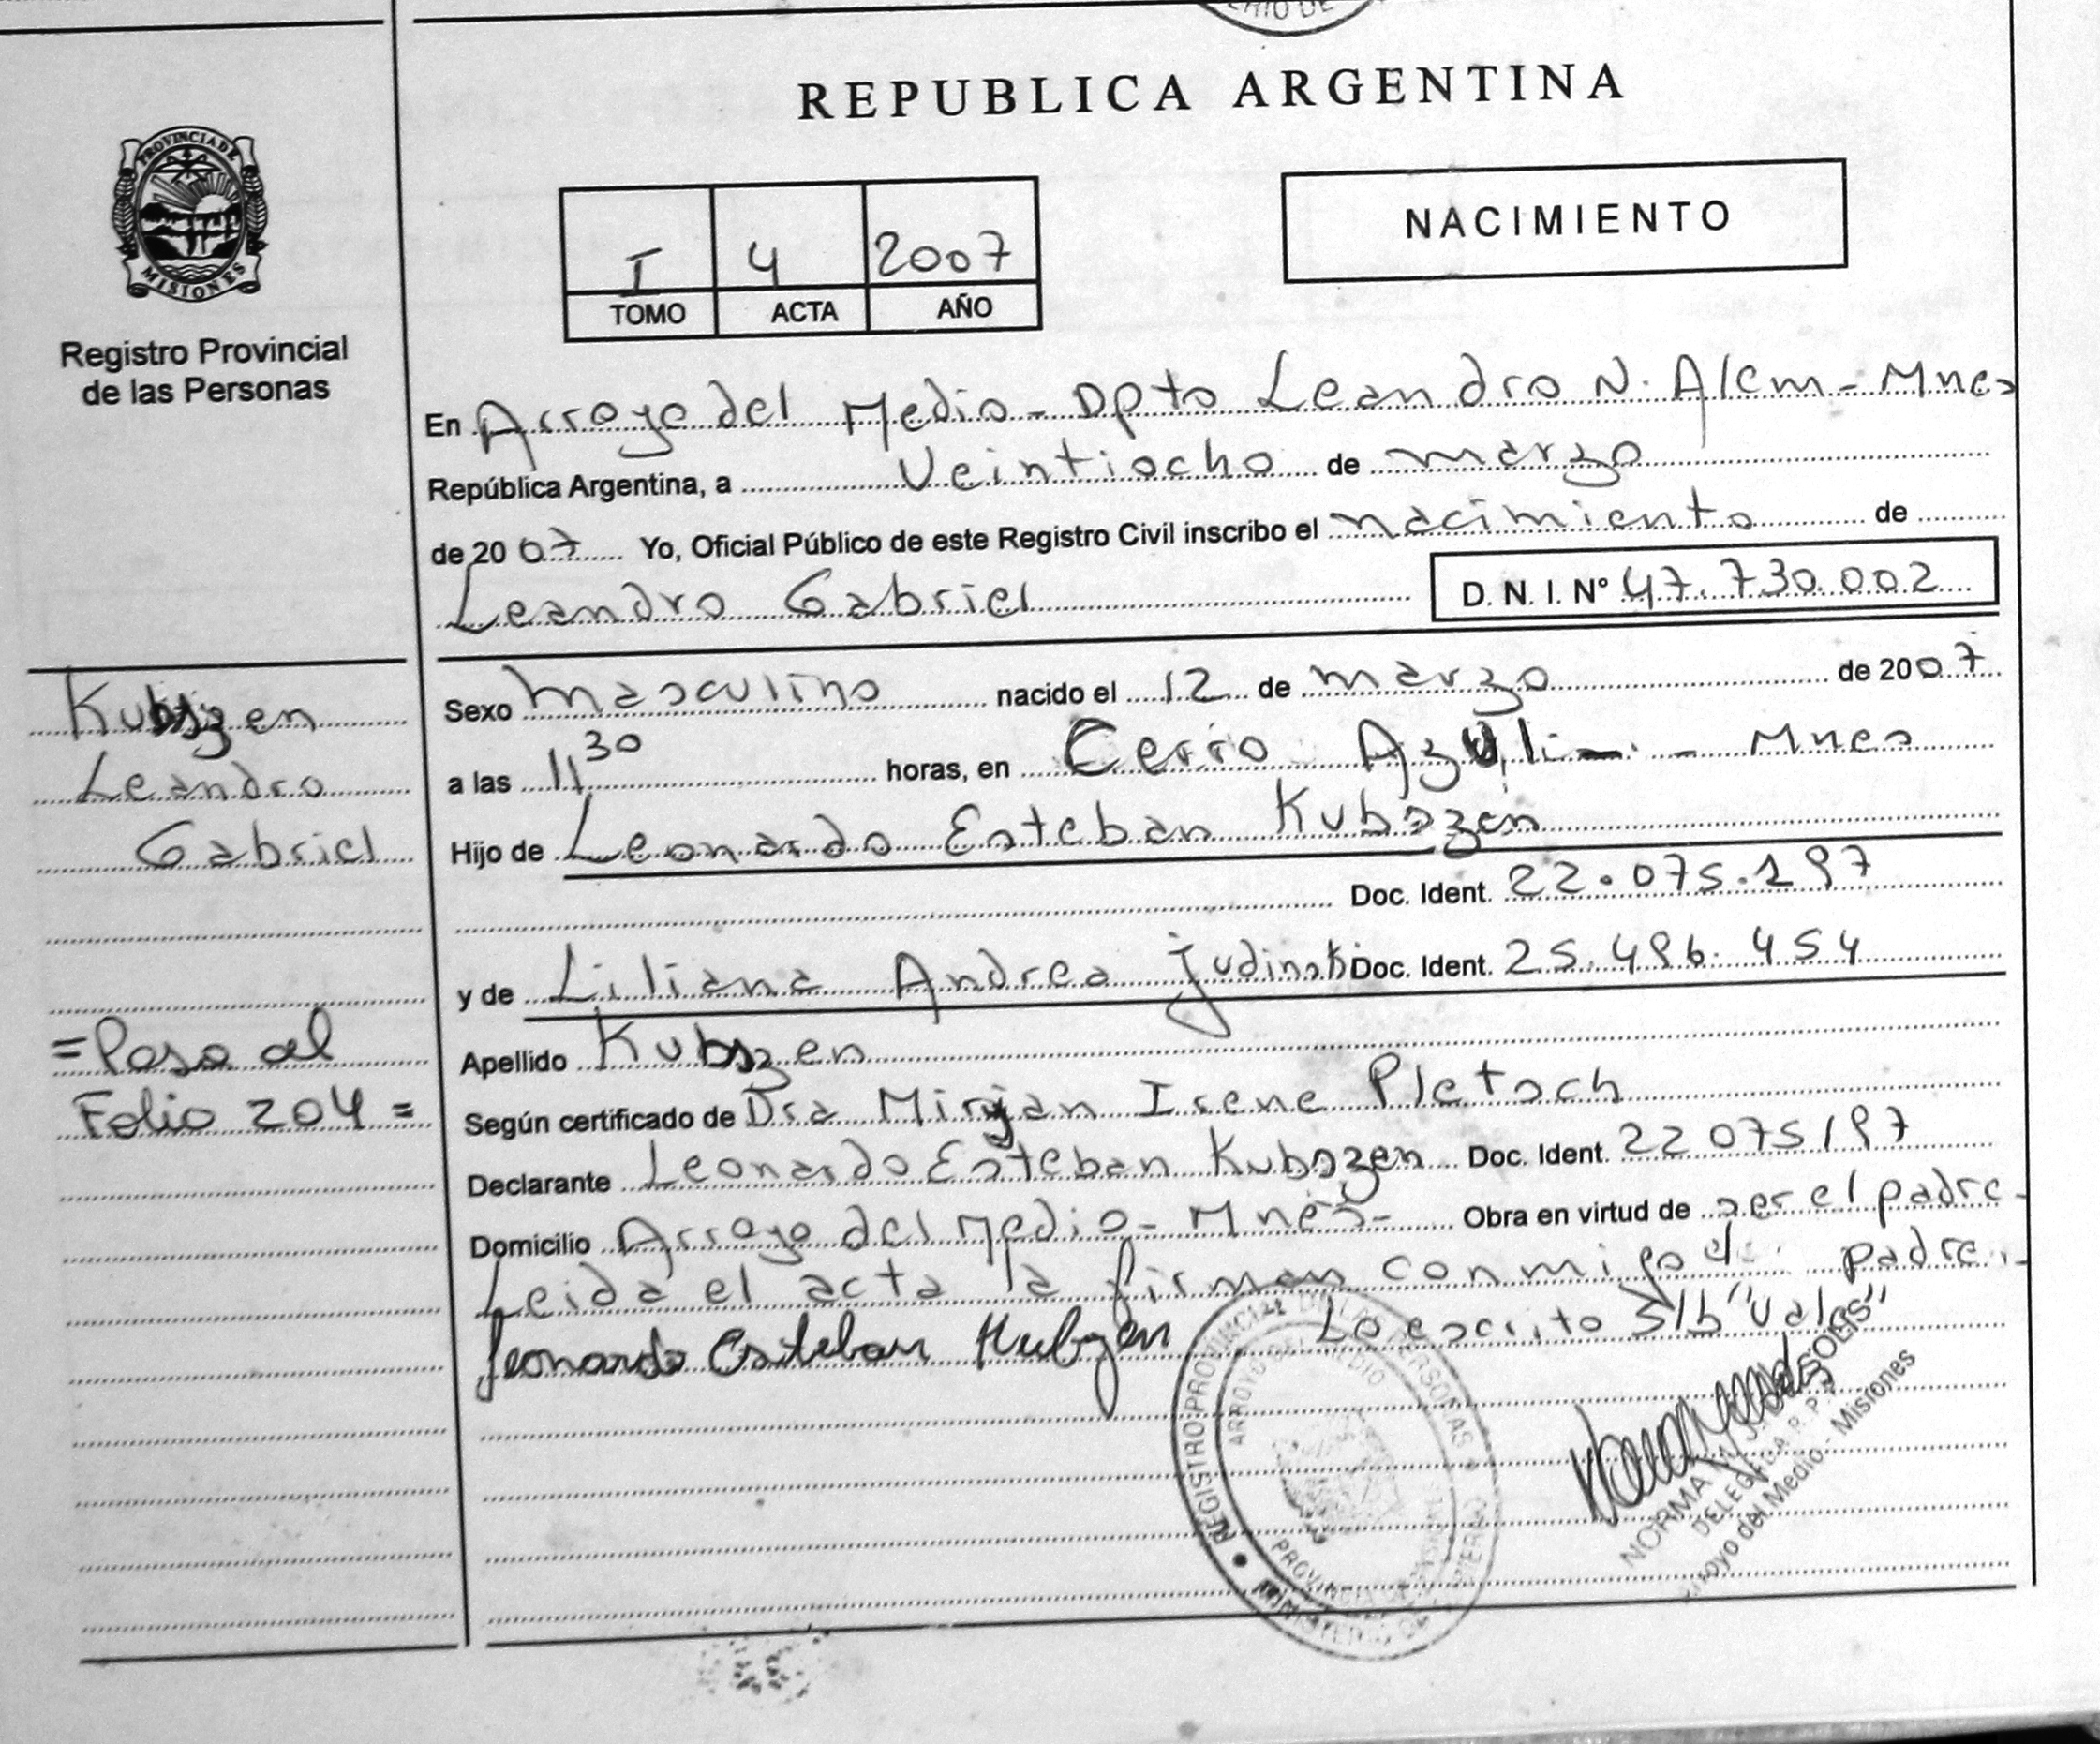 REPUBLICA ARGENTINA
PROVINCIA DE
MISIONES
Registro Provincial
de las Personas
I 4 2007
TOMO ACTA AÑO
NACIMIENTO
En Arroyo del Medio - Dpto Leandro N. Alem - Mnes
República Argentina, a Veintiocho de marzo
de 2007 Yo, Oficial Público de este Registro Civil inscribo el nacimiento de
Leandro Gabriel D. N. I. N° 47.730.002
Kubszen
Leandro
Gabriel
= Pasa al
Folio 204 =
Sexo masculino nacido el 12 de marzo de 2007
a las 11 30 horas, en Cerro Azul - Mnes
Hijo de Leonardo Esteban Kubszen
Doc. Ident. 22.075.197
y de Liliana Andrea Doc. Ident. 25.496.454
Apellido Kubszen
Según certificado de Dra Mirian Irene Pletsch
Declarante Leonardo Esteban Kubszen Doc. Ident. 22075197
Domicilio Arroyo del Medio - Mnes - Obra en virtud de ser el padre -
Leida el acta la firman conmigo el padre. -
Lo escrito S/b "Vale"
Leonardo Esteban Kubzen
REGISTRO PROVINCIAL DE LAS PERSONAS
ARROYO DEL MEDIO
NORMA
DELEGADA R. P. P.
Arroyo del Medio - Misiones